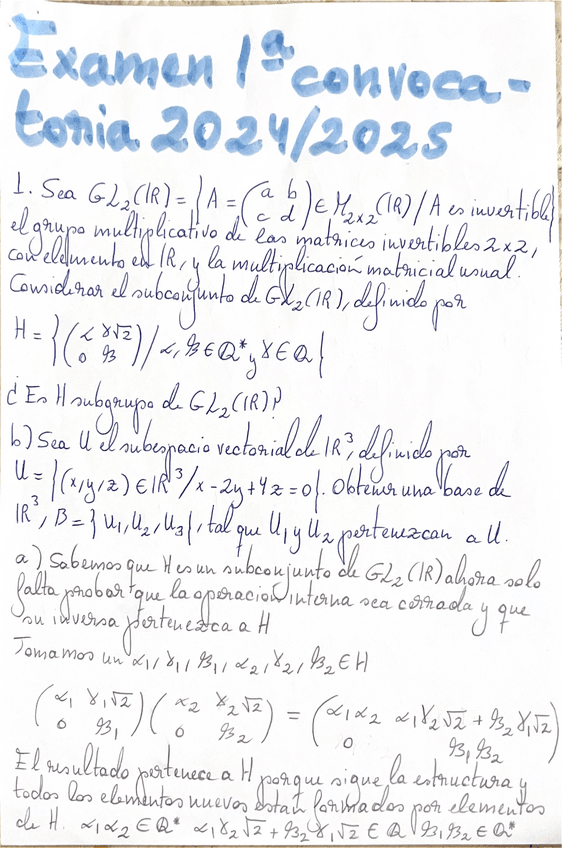 Examen 1ª convoca-
toria 2024/2025
1. Sea GL₂(ℝ) = { A = (a b
c d) ∈ M₂ₓ₂(ℝ) / A es invertible}
el grupo multiplicativo de las matrices invertibles 2x2,
con elemento en ℝ, y la multiplicación matricial usual.
Considerar el subconjunto de GL₂(ℝ), definido por
H = { (α γ√2
0 β) / α, β ∈ ℚ* y γ ∈ ℚ }
¿Es H subgrupo de GL₂(ℝ)?
b) Sea U el subespacio vectorial de ℝ³, definido por
U = { (x,y,z) ∈ ℝ³ / x - 2y + 4z = 0 }. Obtener una base de
ℝ³, B = { U₁, U₂, U₃ }, tal que U₁ y U₂ pertenezcan a U.
a) Sabemos que H es un subconjunto de GL₂(ℝ) ahora solo
falta probar que la operación interna sea cerrada y que
su inversa pertenezca a H
Tomamos un α₁, γ₁, β₁, α₂, γ₂, β₂ ∈ H
(α₁ γ₁√2
0 β₁) (α₂ γ₂√2
0 β₂) = (α₁α₂ α₁γ₂√2 + β₂γ₁√2
0 β₁β₂)
El resultado pertenece a H porque sigue la estructura y
todos los elementos nuevos estan formados por elementos
de H. α₁α₂ ∈ ℚ* α₁γ₂√2 + β₂γ₁√2 ∈ ℚ β₁β₂ ∈ ℚ*